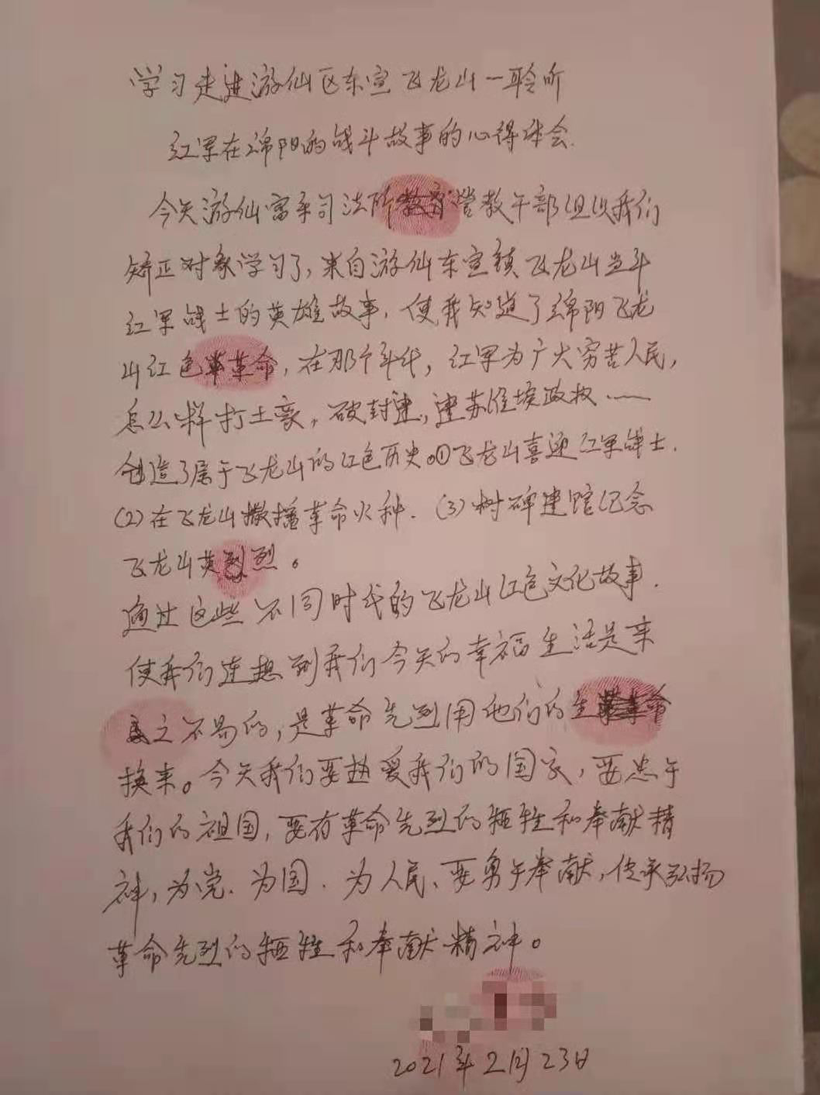 学习走进游仙区东宣飞龙山一聆听
红军在绵阳的战斗故事的心得体会.
今天游仙富乐司法所管教干部组织我们
矫正对象学习了,来自游仙东宣镇飞龙山当年
红军战士的英雄故事,使我知道了绵阳飞龙
山红色革命,在那个年代,红军为广大穷苦人民,
怎么样打土豪,破封建,建苏维埃政权……
创造了属于飞龙山的红色历史。①飞龙山喜迎红军战士.
(2)在飞龙山撒播革命火种.(3)树碑建馆纪念
飞龙山英烈。
通过这些不同时代的飞龙山红色文化故事.
使我们连想到我们今天的幸福生活是来
之不易的,是革命先烈用他们的生命
换来。今天我们要热爱我们的国家,要忠于
我们的祖国,要有革命先烈的牺牲和奉献精
神,为党.为国.为人民、要勇于奉献,传承弘扬
革命先烈的牺牲和奉献精神。
2021年2月23日